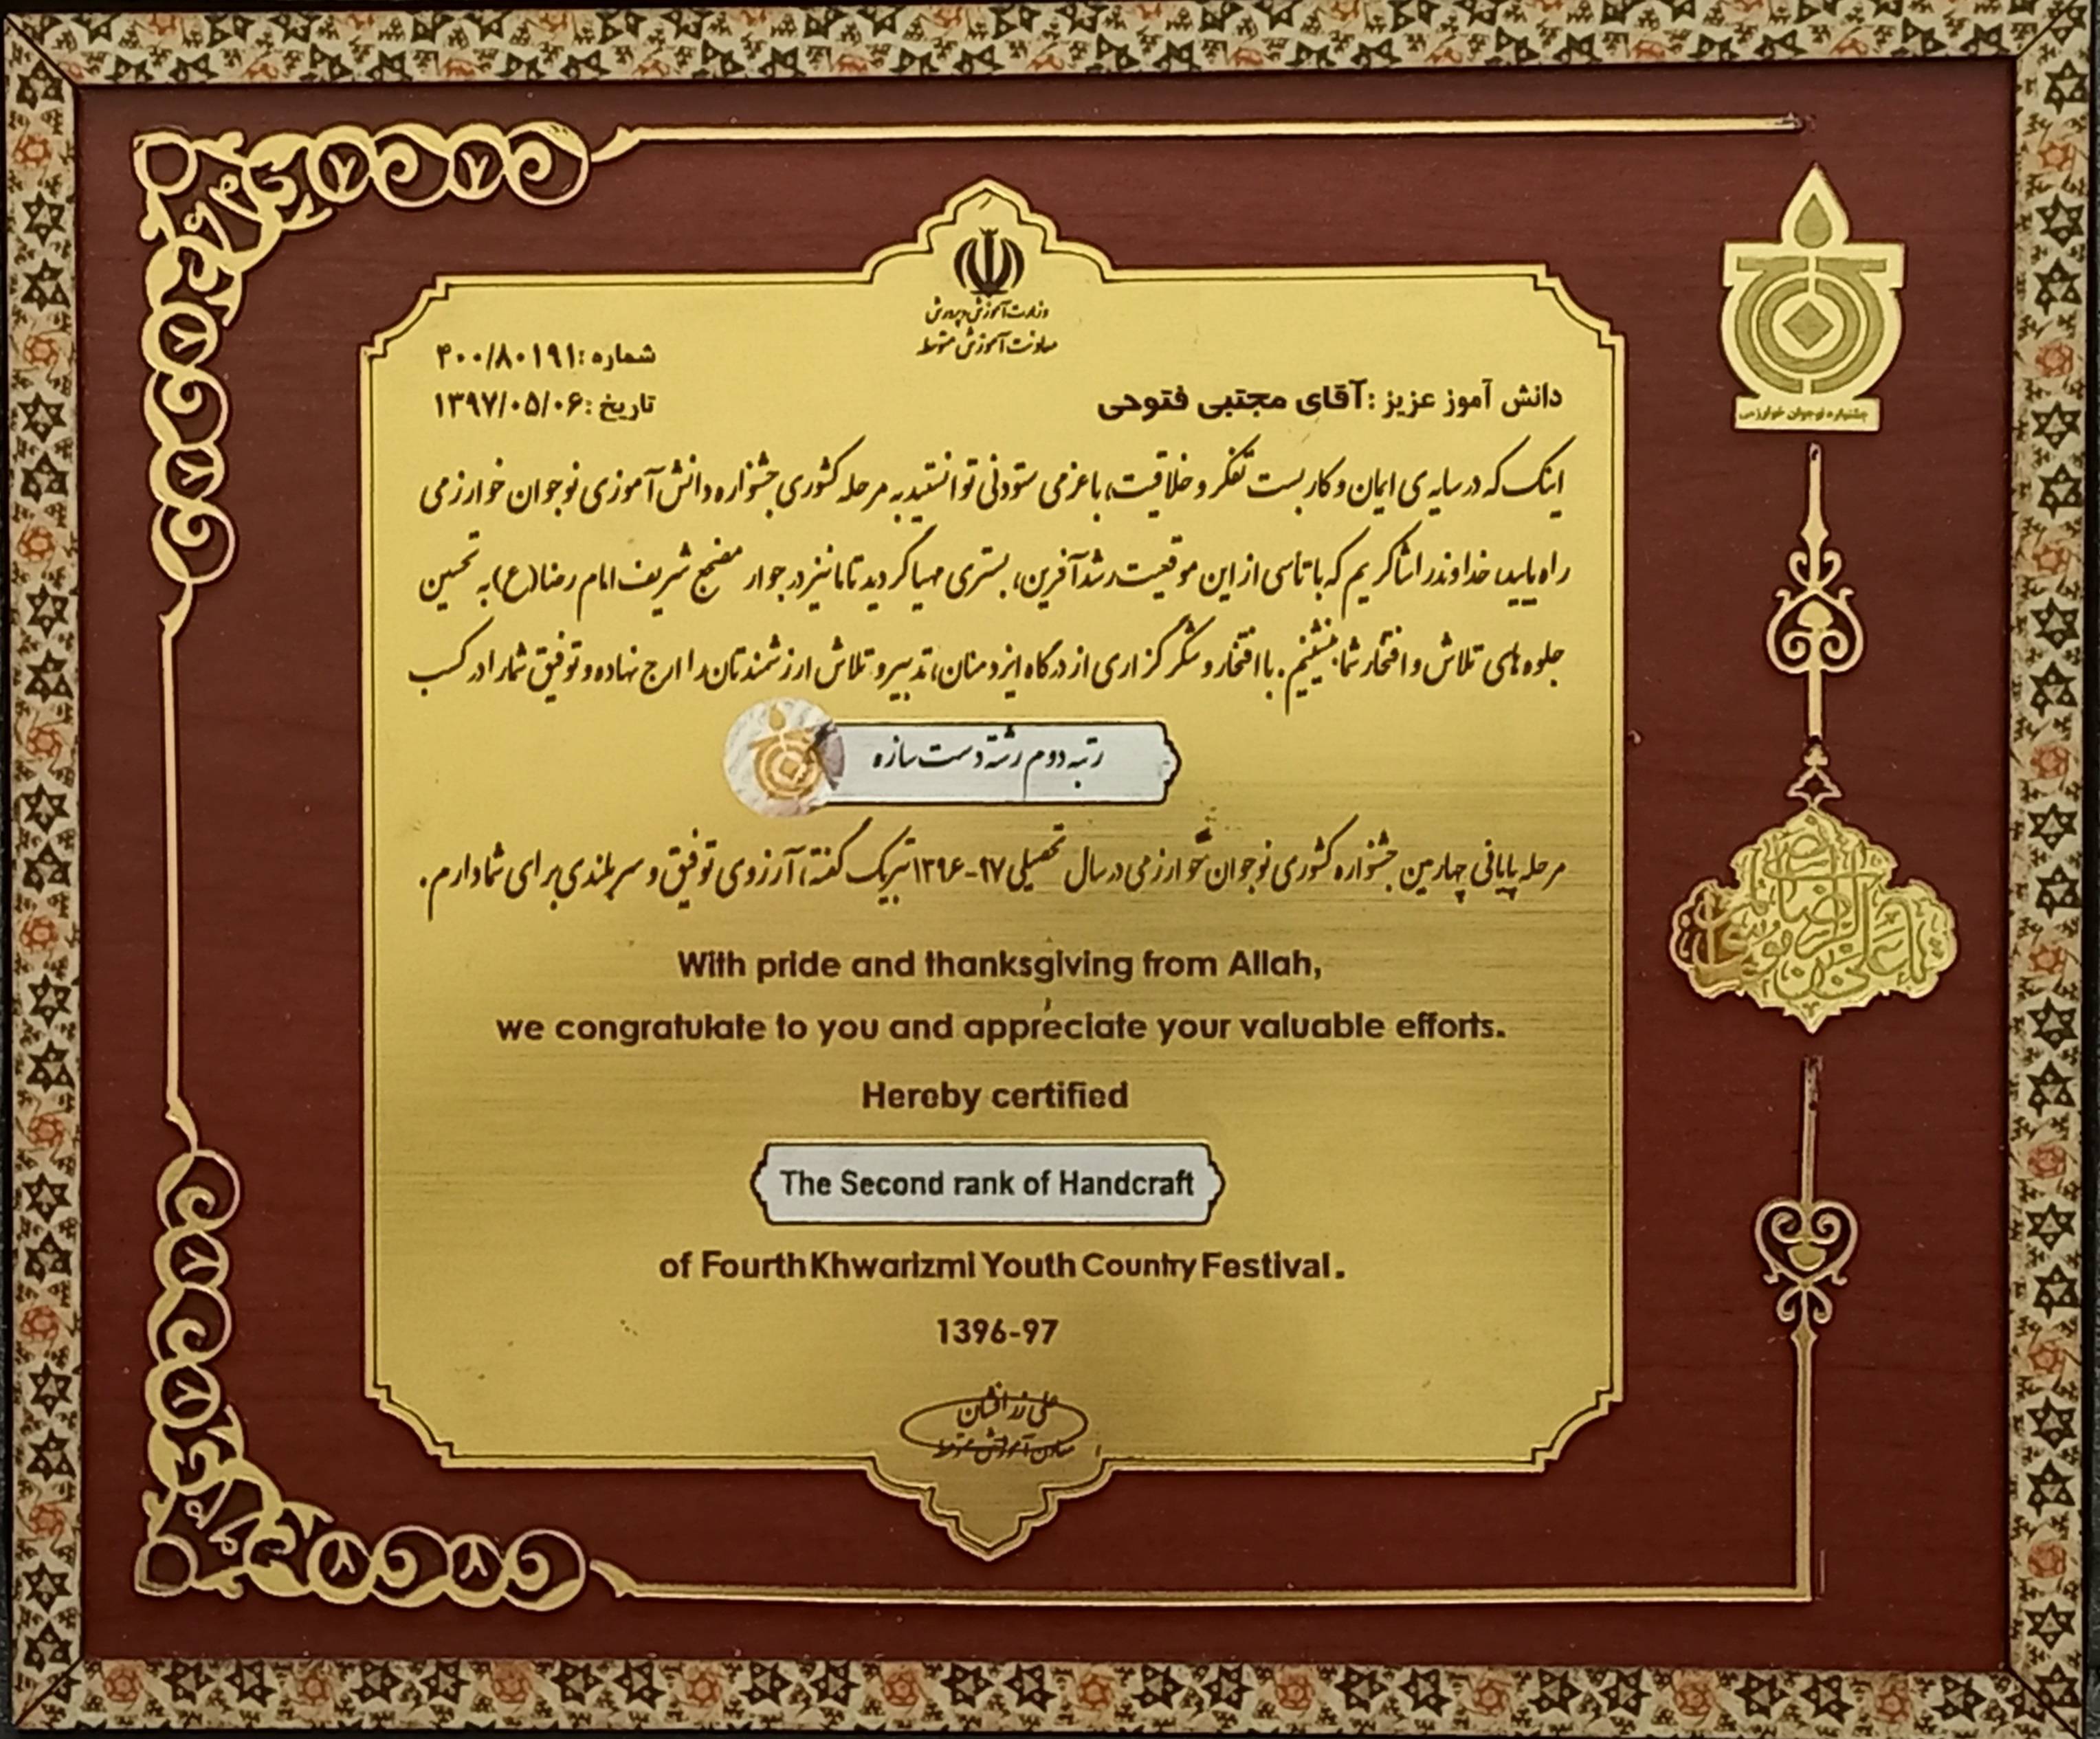 وزارت آموزش و پرورش
معاونت آموزش متوسطه
شماره :۴۰۰/۸۰۱۹۱
تاریخ :۱۳۹۷/۰۵/۰۶
دانش آموز عزیز :آقای مجتبی فتوحی
اینک که در سایه ی ایمان و کاربست تفکر و خلاقیت، با عزمی ستودنی توانستید به مرحله کشوری جشنواره دانش آموزی نوجوان خوارزمی
راه یابید، خداوند را شاکریم که با تاسی از این موقعیت رشدآفرین، بستری مهیا گردید تا ما نیز در جوار مضجع شریف امام رضا(ع) به تحسین
جلوه های تلاش و افتخار شما بنشینیم. با افتخار و شکرگزاری از درگاه ایزد منان، تدبیر و تلاش ارزشمندتان را ارج نهاده و توفیق شما را در کسب
رتبه دوم رشته دست سازه
مرحله پایانی چهارمین جشنواره کشوری نوجوان خوارزمی در سال تحصیلی ۹۷-۱۳۹۶ تبریک گفته، آرزوی توفیق و سربلندی برای شما دارم.
With pride and thanksgiving from Allah,
we congratulate to you and appreciate your valuable efforts.
Hereby certified
The Second rank of Handcraft
of Fourth Khwarizmi Youth Country Festival.
1396-97
علی زرافشان
معاون آموزش متوسطه
جشنواره نوجوان خوارزمی